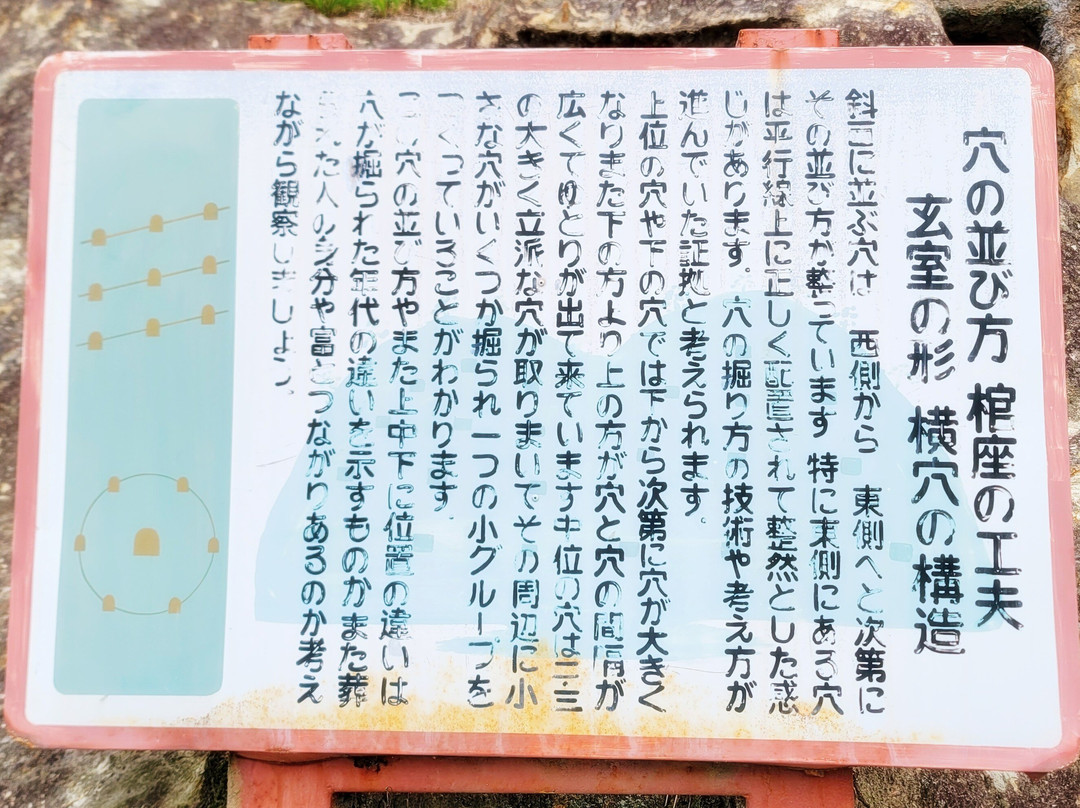 穴の並び方 棺座の工夫
玄室の形 横穴の構造
斜面に並ぶ穴は 西側から 東側へと次第に
その並び方が整っています 特に東側にある穴
は平行線上に正しく配置されて整然とした感
じがあります。穴の掘り方の技術や考え方が
進んでいた証拠と考えられます。
上位の穴や下の穴では下から次第に穴が大きく
なりまた下の方より上の方が穴と穴の間隔が
広くてゆとりが出て来ています中位の穴は二・三
の大きく立派な穴が取りまいてその周辺に小
さな穴がいくつか掘られ一つの小グループを
つくっていることがわかります。
穴の並び方やまた上中下に位置の違いは
穴が掘られた年代の違いを示すものかまた葬
た人の身分や富とつながりあるのか考え
ながら観察しましょう。